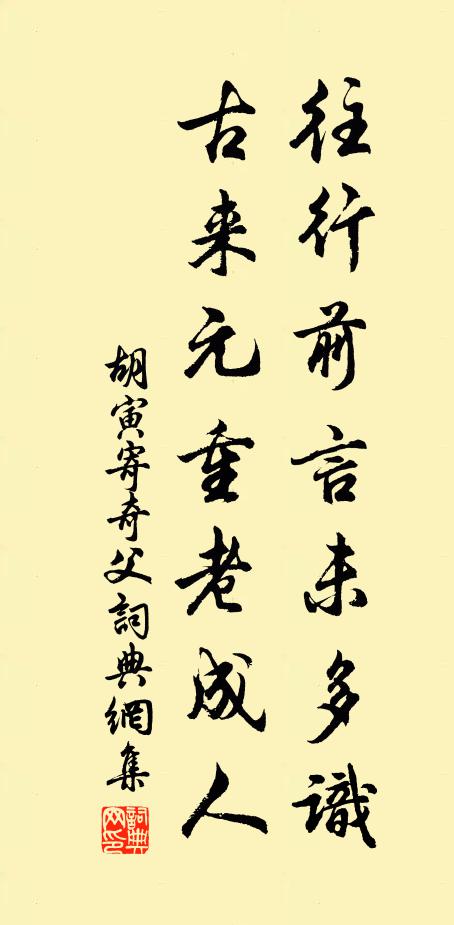 往行前言未多識
古来元重老成人
胡寅寄奇父詞典網集
詞典網印